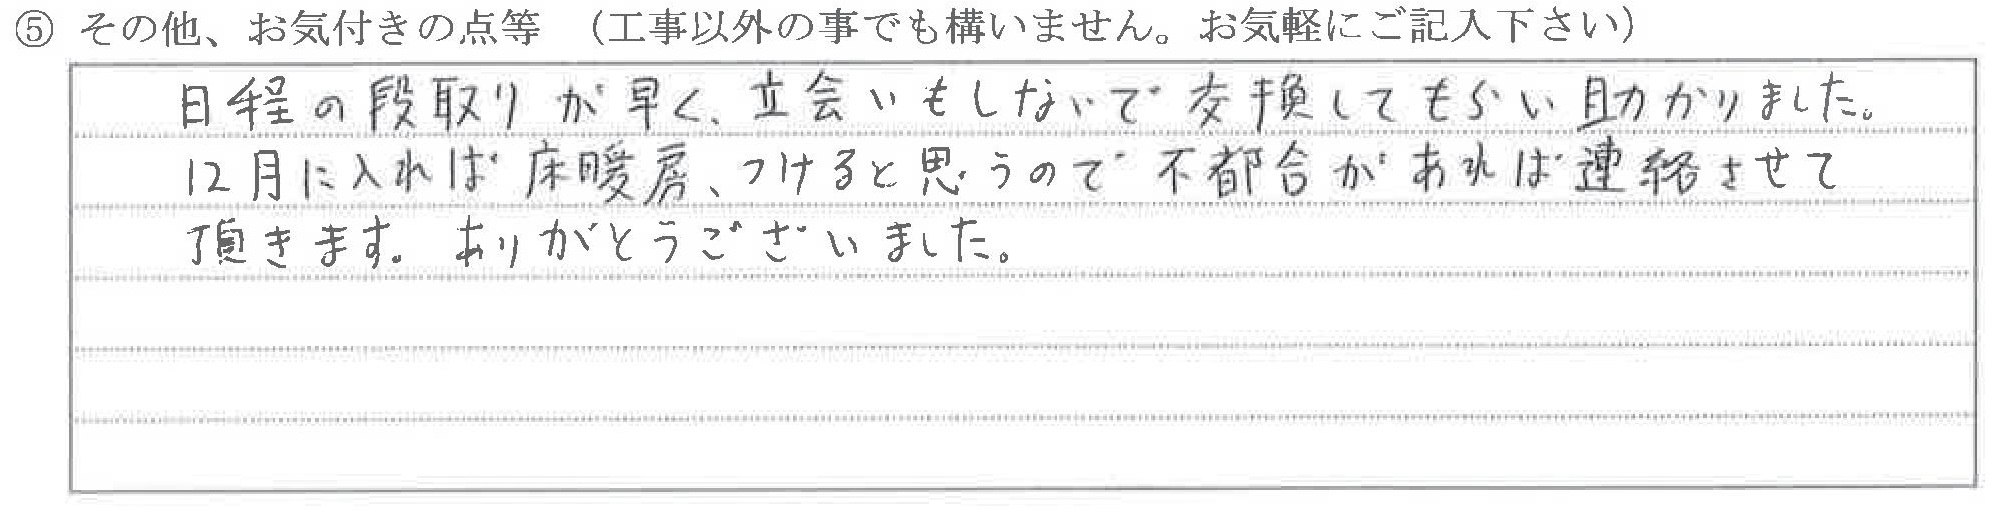 ⑤ その他、お気付きの点等 （工事以外の事でも構いません。お気軽にご記入下さい）
日程の段取りが早く、立会いもしないで交換してもらい助かりました。
12月に入れば床暖房、つけると思うので不都合があれば連絡させて
頂きます。ありがとうございました。